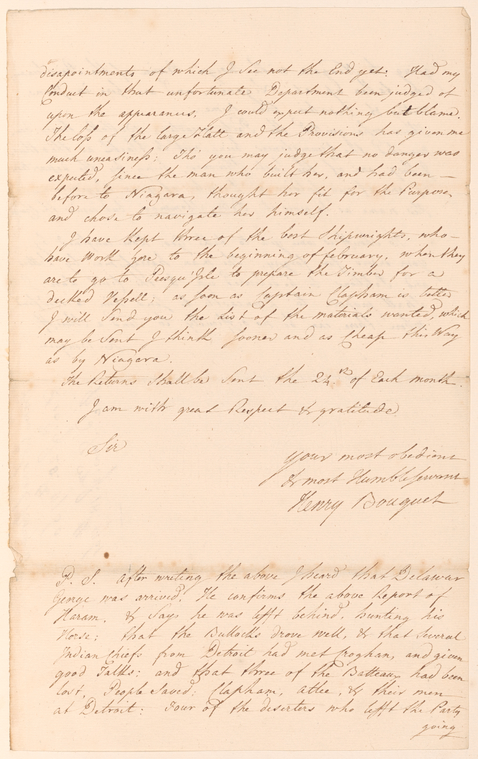 disapointments of which I see not the End yet. Had my
Conduct in that unfortunate Department been judged of
upon the appearances, I could expect nothing but blame.
The loss of the large Flatt and the Provisions has given me
much uneasiness: Tho' you may judge that no danger was
expected, since the man who built her, and had been —
before to Niagara, thought her fit for the Purpose,
and chose to navigate her himself.
I have Kept three of the best Shipwrights, who
have Work here to the beginning of february, when they
are to go to Presqu'Isle to prepare the Timber for a
decked Vessell; as soon as Captain Clapham is better
I will Send you the List of the materials wanted, which
may be Sent I think sooner and as Cheap this Way
as by Niagara.
The Returns Shall be Sent the 24th of Each month.
I am with great Respect & gratitude
Sir
your most obedient
& most Humble Servant
Henry Bouquet
P. S. after writing the above I heard that Delawar
George was arrived. He confirms the above Report of
Hiram. & Says he was lefft behind, hunting his
Horse; that the Bullocks drove well, & that Several
Indian Chiefs from Detroit had met Croghan, and given
good Talks: and that three of the Batteaux had been
lost, People Saved: Clapham, atlee, & their men
at Detroit: Four of the deserters who lefft the Party
going